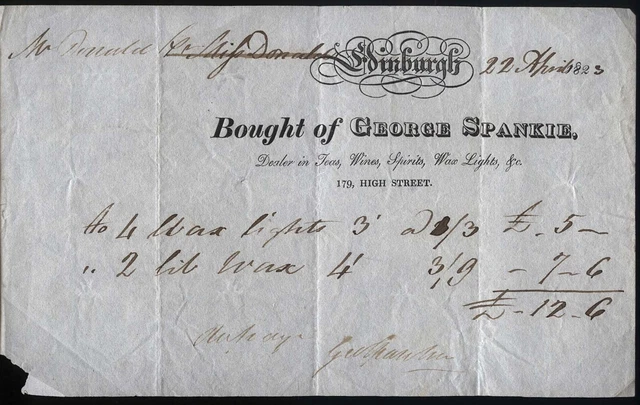 Mr Donald Edinburgh 22 April 1823
Bought of GEORGE SPANKIE,
Dealer in Teas, Wines, Spirits, Wax Lights, &c.
179, HIGH STREET.
to 4 Wax lights 3' 1/3 £ - 5 -
" 2 lib Wax 4' 3/9 - 7 - 6
£ - 12 - 6
Geo Spankie